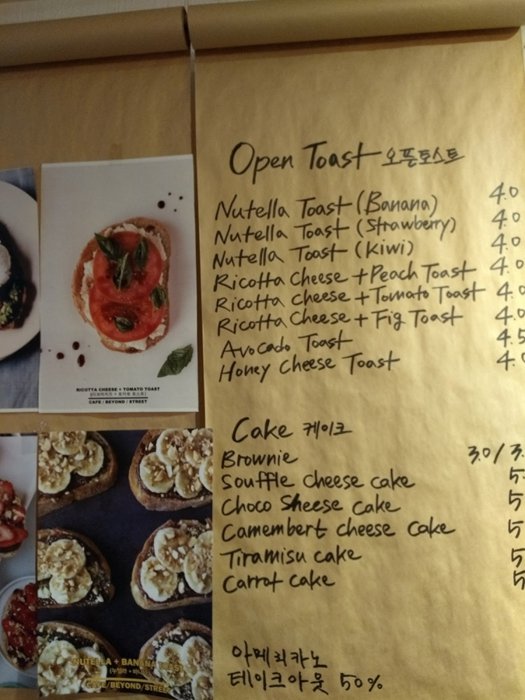 Open Toast 오픈토스트
Nutella Toast (Banana) 4.0
Nutella Toast (Strawberry) 4.0
Nutella Toast (Kiwi) 4.0
Ricotta Cheese + Peach Toast 4.0
Ricotta Cheese + Tomato Toast 4.0
Ricotta Cheese + Fig Toast 4.0
Avocado Toast 4.5
Honey Cheese Toast 4.0
Cake 케이크
Brownie 3.0 / 3.
Souffle cheese cake 5
Choco Sheese cake 5
Camembert cheese cake 5
Tiramisu cake 5
Carrot cake 5
아메리카노
테이크아웃 50%
RICOTTA CHEESE + TOMATO TOAST
CAFE / BEYOND / STREET
NUTELLA + BANANA
CAFE / BEYOND / STREET